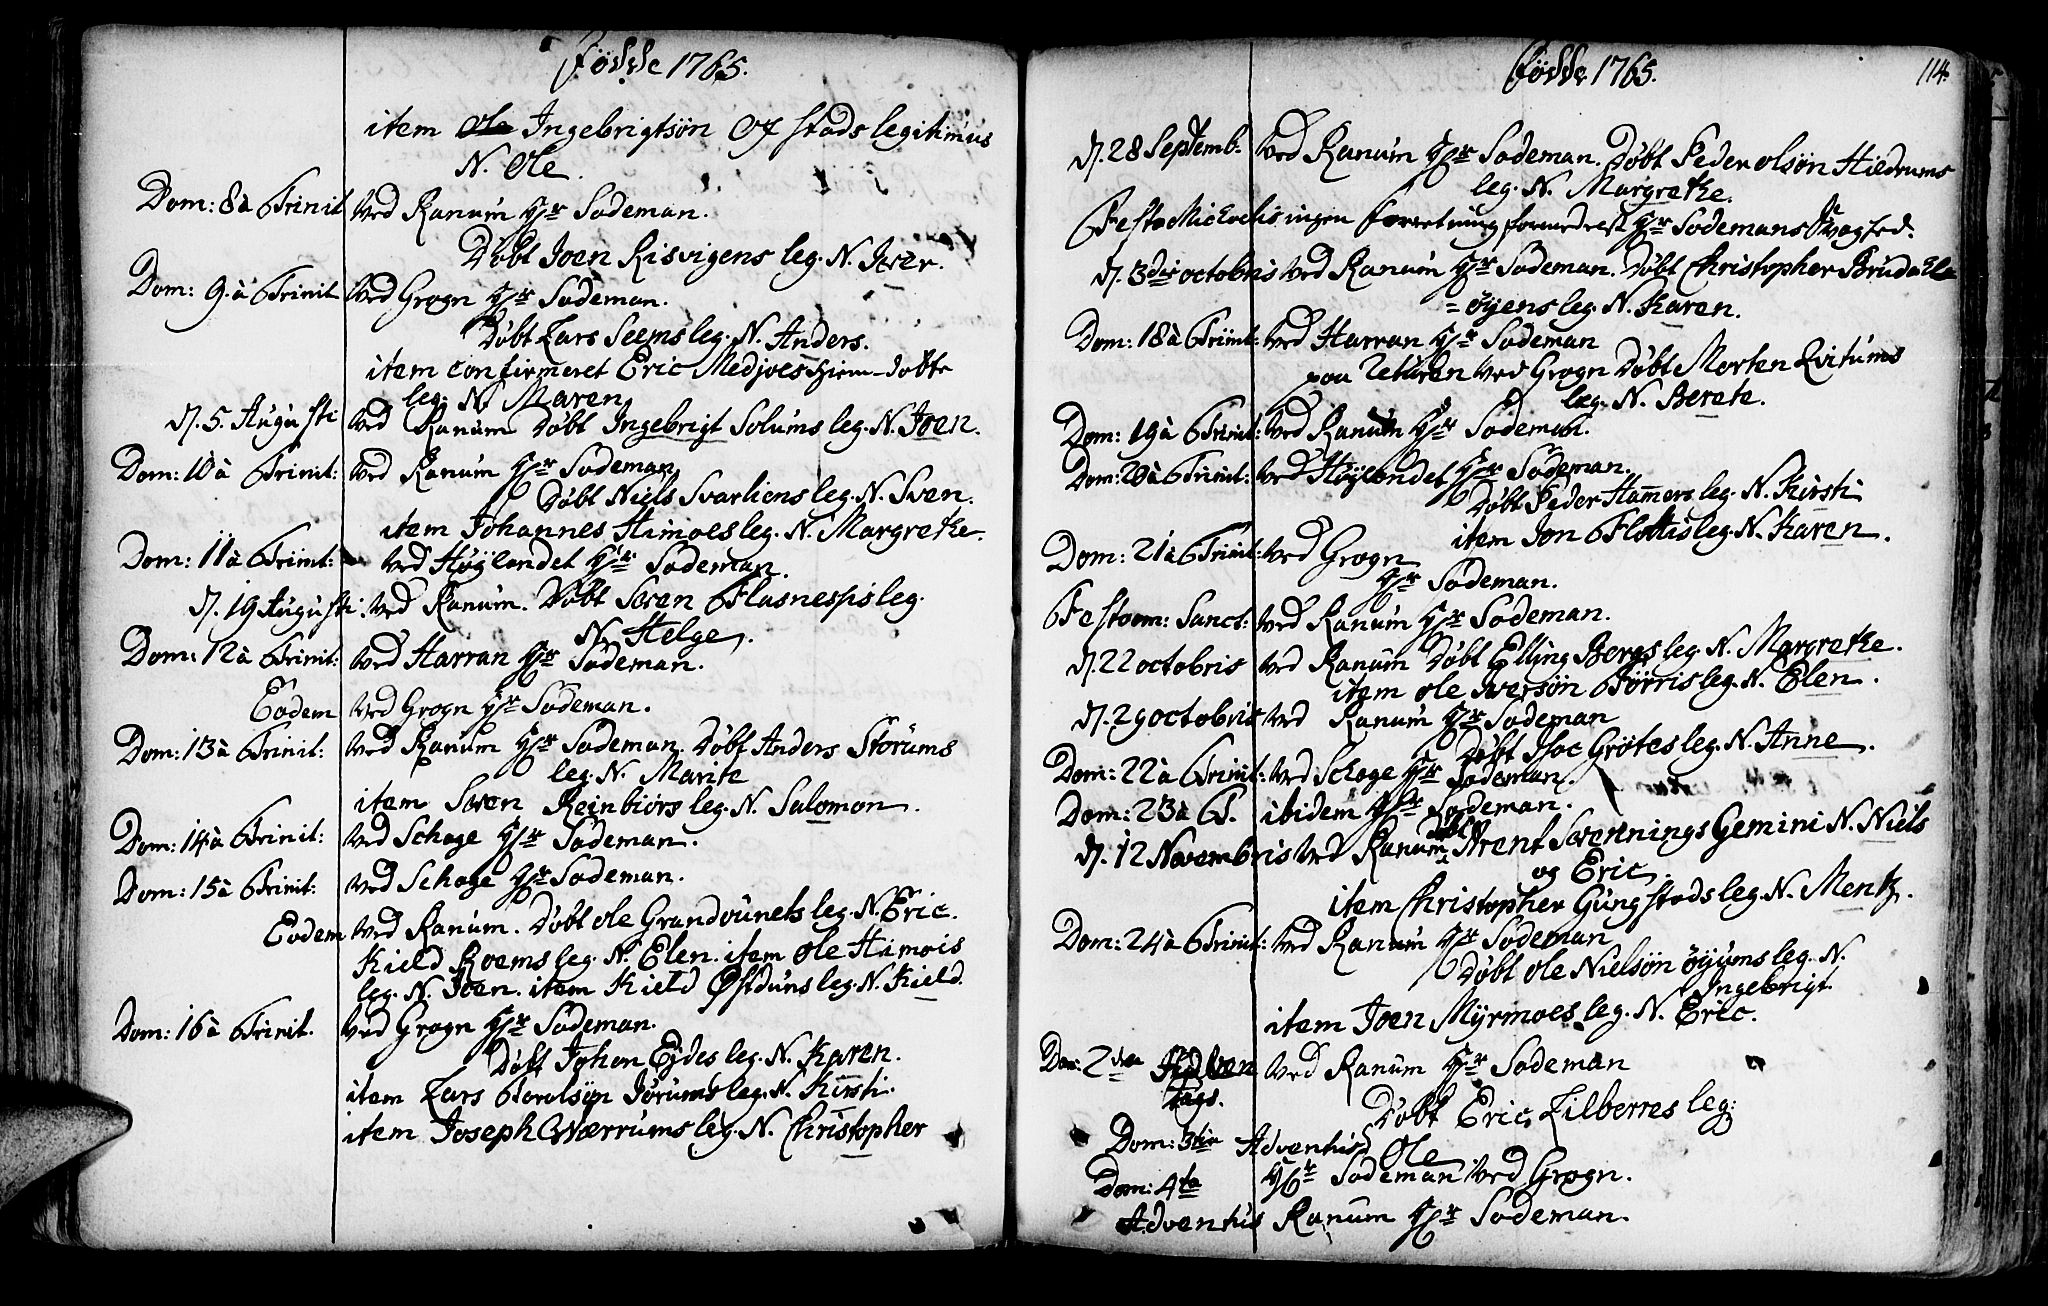 Fødde 1765.
item Ole Ingebrigtsøn Ofstads legitimus
N. Ole.
Dom: 8 à Trinit ved Ranum Hr Sodeman.
Døbt Joen Risvigens leg. N. Iver.
Dom: 9. à Trinit ved Grogn Hr Sodeman.
Døbt Lars Seems leg. N. Anders.
item confirmeret Eric Medjoes hiem-døbte
leg. N. Maren
d. 5. Augusti ved Ranum Døbt Ingebrigt Solums leg. N. Joen.
Dom: 10 à Trinit: ved Ranum Hr Sodeman
Døbt Niels Svarliens leg. N. Sven.
item Johannes Himoes leg. N. Margrethe.
Dom: 11 à Trinit: ved Høylandet Hr Sodeman.
d. 19 Augusti. ved Ranum. Døbt Soren Flasnesps leg.
N. Helge.
Dom: 12 à Trinit: ved Harran Hr Sodeman.
Eodem ved Grogn Hr Sodeman.
Dom: 13 à Trinit: ved Ranum Hr Sodeman. Døbt Anders Storums
leg. N. Marite
item Soren Reinbiørs leg. N. Salomon.
Dom: 14 à Trinit: ved Schage Hr Sodeman.
Dom: 15 à Trinit: ved Schage Hr Sodeman.
Eodem ved Ranum. Døbt Ole Grandvunets leg. N. Eric.
Kield Roems leg. N. Elen. item Ole Himois
leg. N. Joen. item Kield Østduns leg. N. Kield.
Dom: 16 à Trinit. ved Grogn Hr Sodeman.
Døbt Johan Ejdes leg. N. Karen.
item Lars Torolsøn Jørums leg. N. Kirsti.
item Joseph Værrums leg. N. Christopher
Fødde 1765.
114.
d. 28 Septemb. ved Ranum Hr Sodeman. Døbt Peder Olsøn Hildrums
leg. N. Margrethe.
Festo Michaelis ingen forretning formedelst Hr Sodemans Svaghed.
d. 3die octobris ved Ranum Hr Sodeman. Døbt Christopher Brudahls
= øyens leg. N. Karen.
Dom: 18 à Trinit: ved Harran Hr Sodeman
paa Returen ved Grogn Døbt Morten Qvitums
leg. N. Berete.
Dom: 19 à Trinit: ved Ranum Hr Sodeman.
Dom: 20 à Trinit: ved Høylandet Hr Sodeman.
Døbt Peder Hamers leg. N. Kirsti
item Jon Flottis leg. N. Karen.
Dom: 21 à Trinit: ved Grogn
Hr Sodeman.
Festo om: Sanct: ved Ranum Hr Sodeman.
d. 22 octobris ved Ranum Døbt Elling Bergs leg. N. Margrethe.
item Ole Iversøn Tørris leg. N. Elen.
d. 29 octobris ved Ranum Hr Sodeman
Døbt Isac Grøtes leg. N. Anne.
Dom: 22 à Trinit: ved Schage Hr Sodeman.
Dom: 23 à T. ibidem Hr Sodeman.
d. 12 Novembris ved Ranum Døbt Arent Sørennings Gemini N. Niels
og Eric.
item Christopher Gungstads leg. N. Mentz.
Dom: 24 à Trinit: ved Ranum Hr Sodeman
Døbt Ole Nielsøn Øyums leg. N.
Ingebrigt.
item Joen Myrmoes leg. N. Eric.
Dom: 2den Adven ved Ranum Hr Sodeman
tags.
Døbt Eric Lilberres leg:
Ole
Dom: 3tia Adventus Hr Sodeman ved Grogn.
Dom: 4ta
Adventus Ranum Hr Sodeman.